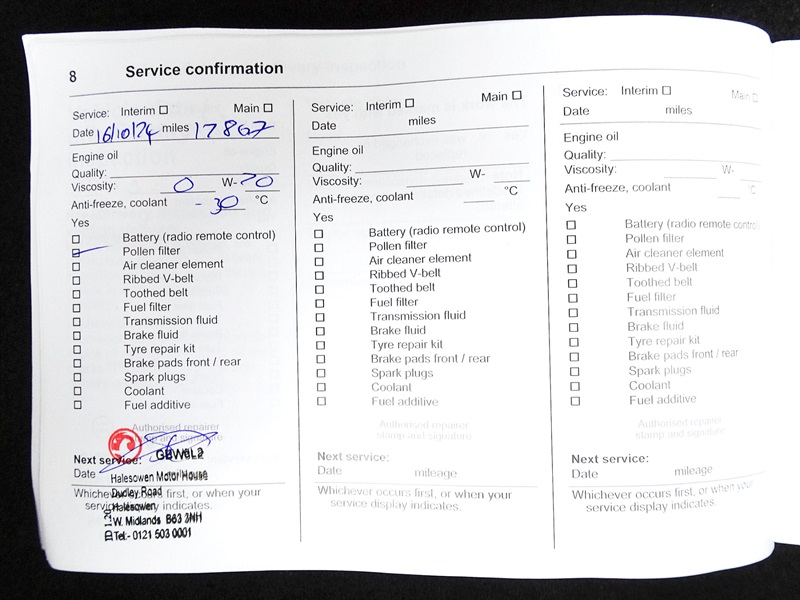 8 Service confirmation
Service: Interim ☐ Main ☐
Date 16/10/24 miles 17867
Engine oil
Quality:
Viscosity: 0 W-20
Anti-freeze, coolant -30 °C
Yes
☐ Battery (radio remote control)
☑ Pollen filter
☐ Air cleaner element
☐ Ribbed V-belt
☐ Toothed belt
☐ Fuel filter
☐ Transmission fluid
☐ Brake fluid
☐ Tyre repair kit
☐ Brake pads front / rear
☐ Spark plugs
☐ Coolant
☐ Fuel additive
Authorised repairer
stamp and signature
Next service: GBW0L2
Date Halesowen Motor House
Whichever occurs first, or when your
Dudley Road
service display indicates.
Halesowen
W. Midlands B63 3NH
Tel:- 0121 503 0001
Service: Interim ☐ Main ☐
Date miles
Engine oil
Quality:
Viscosity: W-
Anti-freeze, coolant °C
Yes
☐ Battery (radio remote control)
☐ Pollen filter
☐ Air cleaner element
☐ Ribbed V-belt
☐ Toothed belt
☐ Fuel filter
☐ Transmission fluid
☐ Brake fluid
☐ Tyre repair kit
☐ Brake pads front / rear
☐ Spark plugs
☐ Coolant
☐ Fuel additive
Authorised repairer
stamp and signature
Next service:
Date mileage
Whichever occurs first, or when your
service display indicates.
Service: Interim ☐ Main ☐
Date miles
Engine oil
Quality:
Viscosity: W-
Anti-freeze, coolant °C
Yes
☐ Battery (radio remote control)
☐ Pollen filter
☐ Air cleaner element
☐ Ribbed V-belt
☐ Toothed belt
☐ Fuel filter
☐ Transmission fluid
☐ Brake fluid
☐ Tyre repair kit
☐ Brake pads front / rear
☐ Spark plugs
☐ Coolant
☐ Fuel additive
Authorised repairer
stamp and signature
Next service:
Date mileage
Whichever occurs first, or when your
service display indicates.